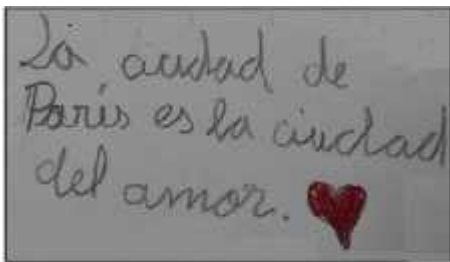 La ciudad de
París es la ciudad
del amor.